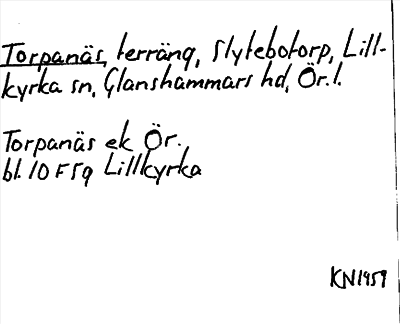 Torpanäs, terräng, Slytebotorp, Lill-
kyrka sn, Glanshammars hd, Ör. l.
Torpanäs ek Ör.
bl. 10 F 5g Lillkyrka
KN1959